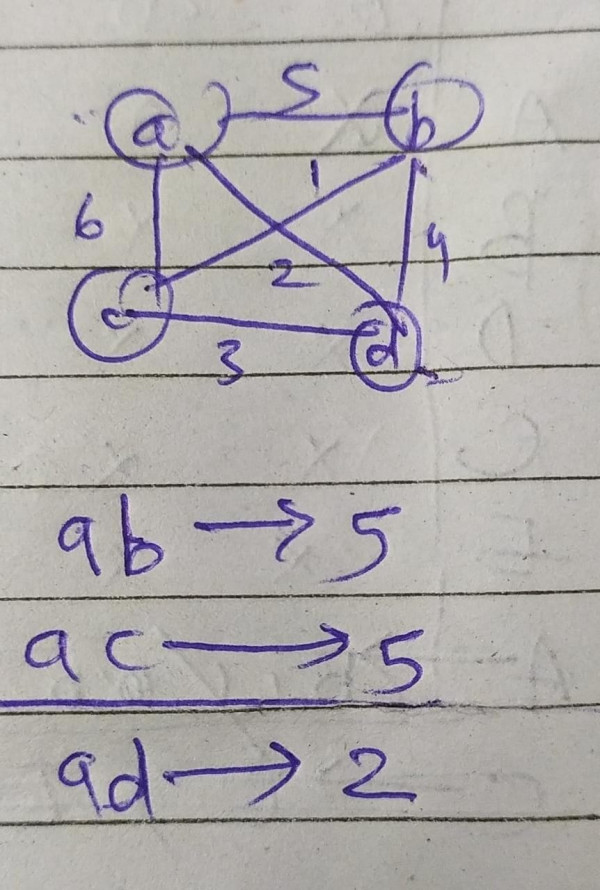 a 5 b
1
6 4
2
c d
3
ab → 5
ac → 5
ad → 2